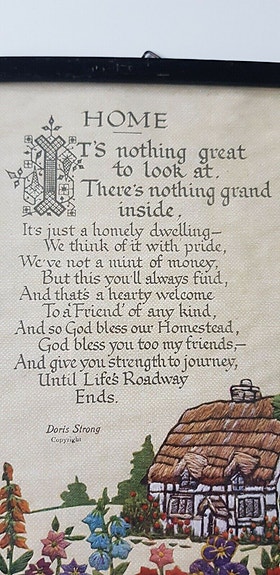 HOME
IT'S nothing great
to look at.
There's nothing grand
inside,
It's just a homely dwelling—
We think of it with pride,
We've not a mint of money,
But this you'll always find,
And that's a hearty welcome
To a 'Friend' of any kind,
And so God bless our Homestead,
God bless you too my friends,—
And give you strength to journey,
Until Life's Roadway
Ends.
Doris Strong
Copyright